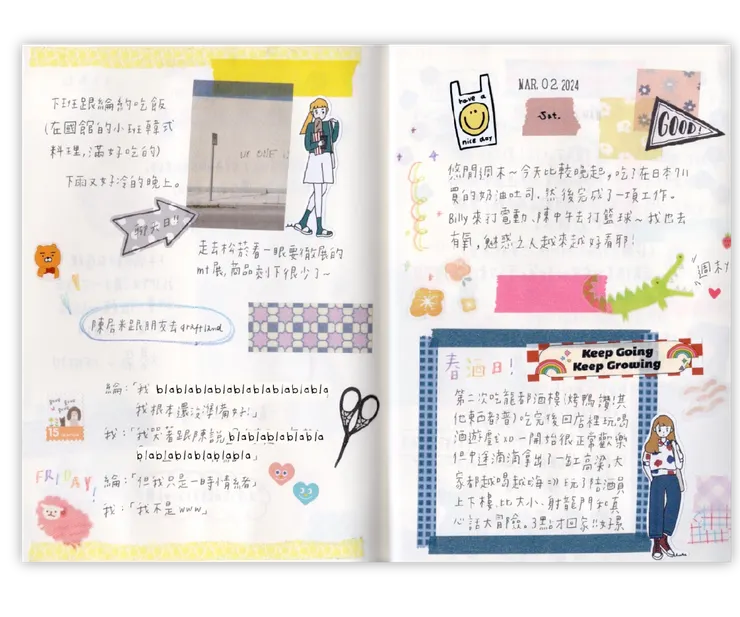 下班跟綸約吃飯
(在國館的小班韓式
料理,滿好吃的)
下雨又好冷的晚上。
WE ONE
走去松菸看一眼要徹展的
mt展,商品剩下很少了~
陳 跟朋友去 craftland
綸:「我 blablablablablablablabla
我根本還沒準備好!」
我:「我哭著跟陳說 blablablablablabla
blablablablablabla」
15
FRIDAY!
綸:「但我只是一時情緒」
我:「我不是 www」
have a
nice day
MAR. 02 2024
Sat.
GOOD!
悠閒週末~今天比較晚起,吃了在日本711
買的奶油吐司,然後完成了一項工作。
Billy來打電動、陳中午去打籃球~我也去
有氧,魅惑之人越來越好看耶!
週末
春酒日!
Keep Going
Keep Growing
第二次吃龍都酒樓(烤鴨讚!其
他東西都普)吃完後回店裡玩喝
酒遊戲xD一開始很正常歡樂
但中途滴滴拿出了一缸高粱,大
家都越喝越嗨=))玩了陪酒員
上下樓、比大小、射龍門和真
心話大冒險。3點才回家!!好累